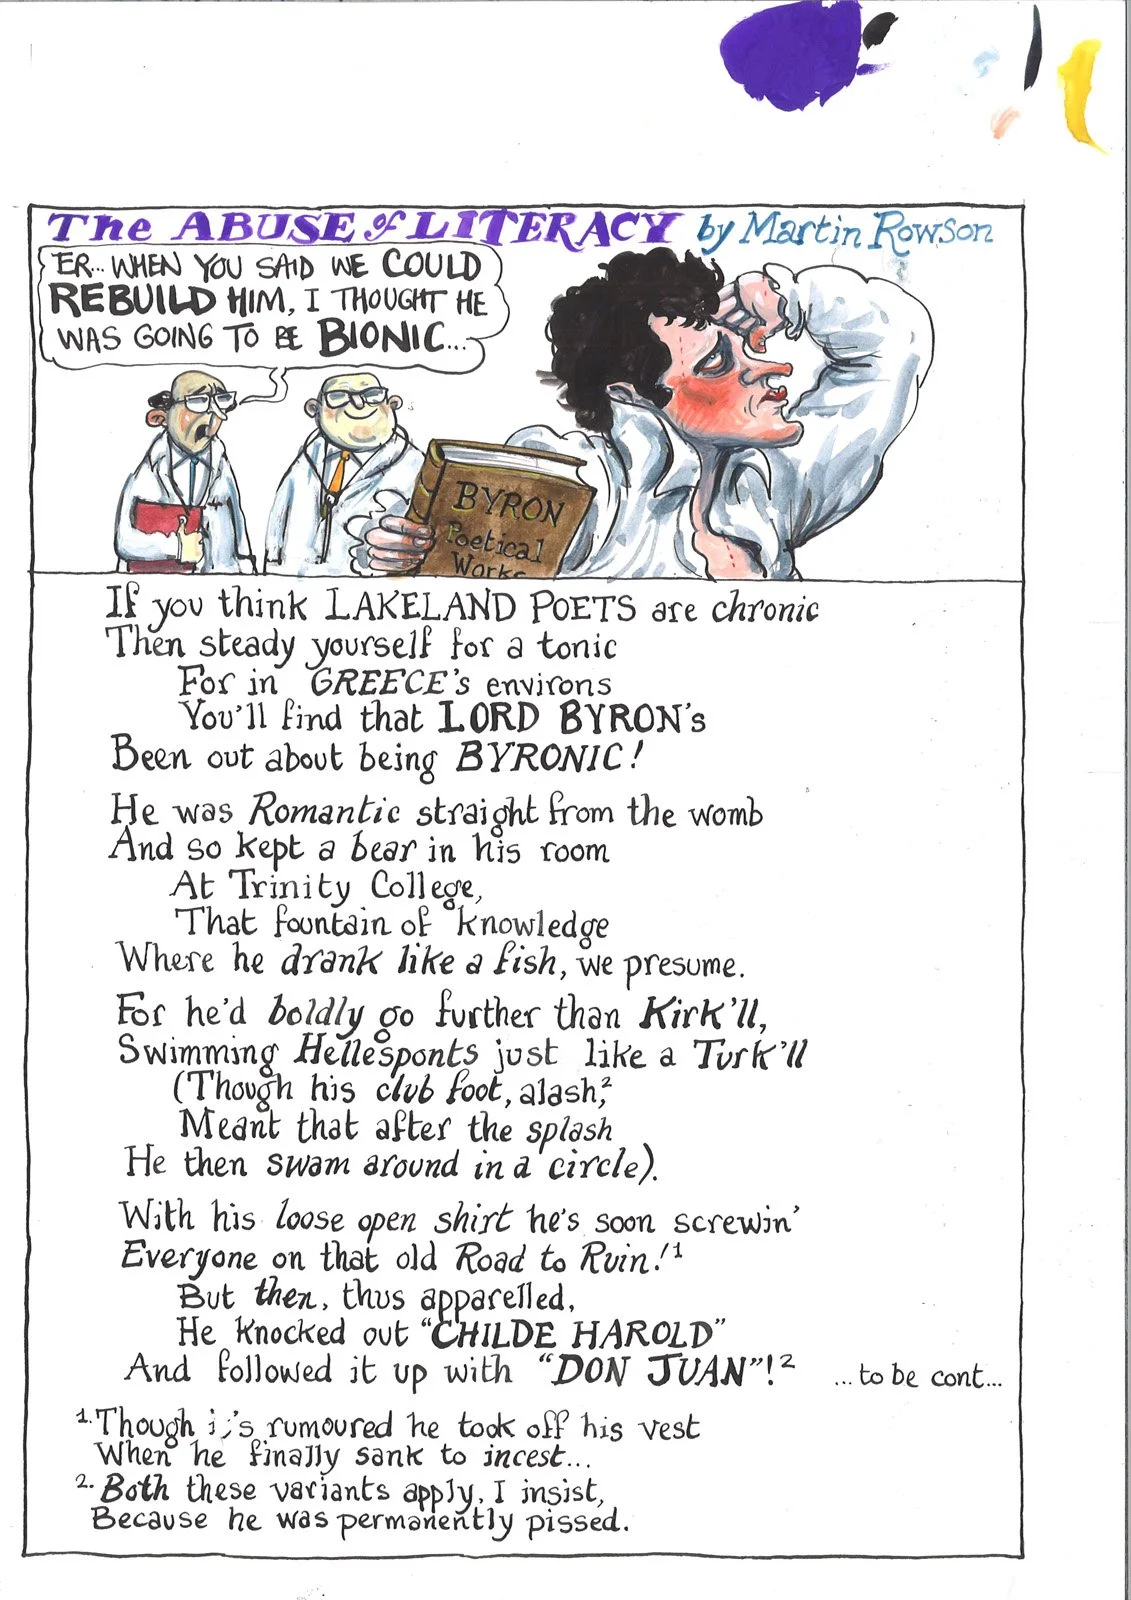 The ABUSE of LITERACY by Martin Rowson
ER... WHEN YOU SAID WE COULD
REBUILD HIM, I THOUGHT HE
WAS GOING TO BE BIONIC...
BYRON
Poetical
Works
If you think LAKELAND POETS are chronic
Then steady yourself for a tonic
For in GREECE's environs
You'll find that LORD BYRON's
Been out about being BYRONIC!
He was Romantic straight from the womb
And so kept a bear in his room
At Trinity College,
That fountain of knowledge
Where he drank like a fish, we presume.
For he'd boldly go further than Kirk'll,
Swimming Hellesponts just like a Turk'll
(Though his club foot, alash,²
Meant that after the splash
He then swam around in a circle).
With his loose open shirt he's soon screwin'
Everyone on that old Road to Ruin!¹
But then, thus apparelled,
He knocked out "CHILDE HAROLD"
And followed it up with "DON JUAN"!²
...to be cont...
1. Though it's rumoured he took off his vest
When he finally sank to incest...
2. Both these variants apply, I insist,
Because he was permanently pissed.